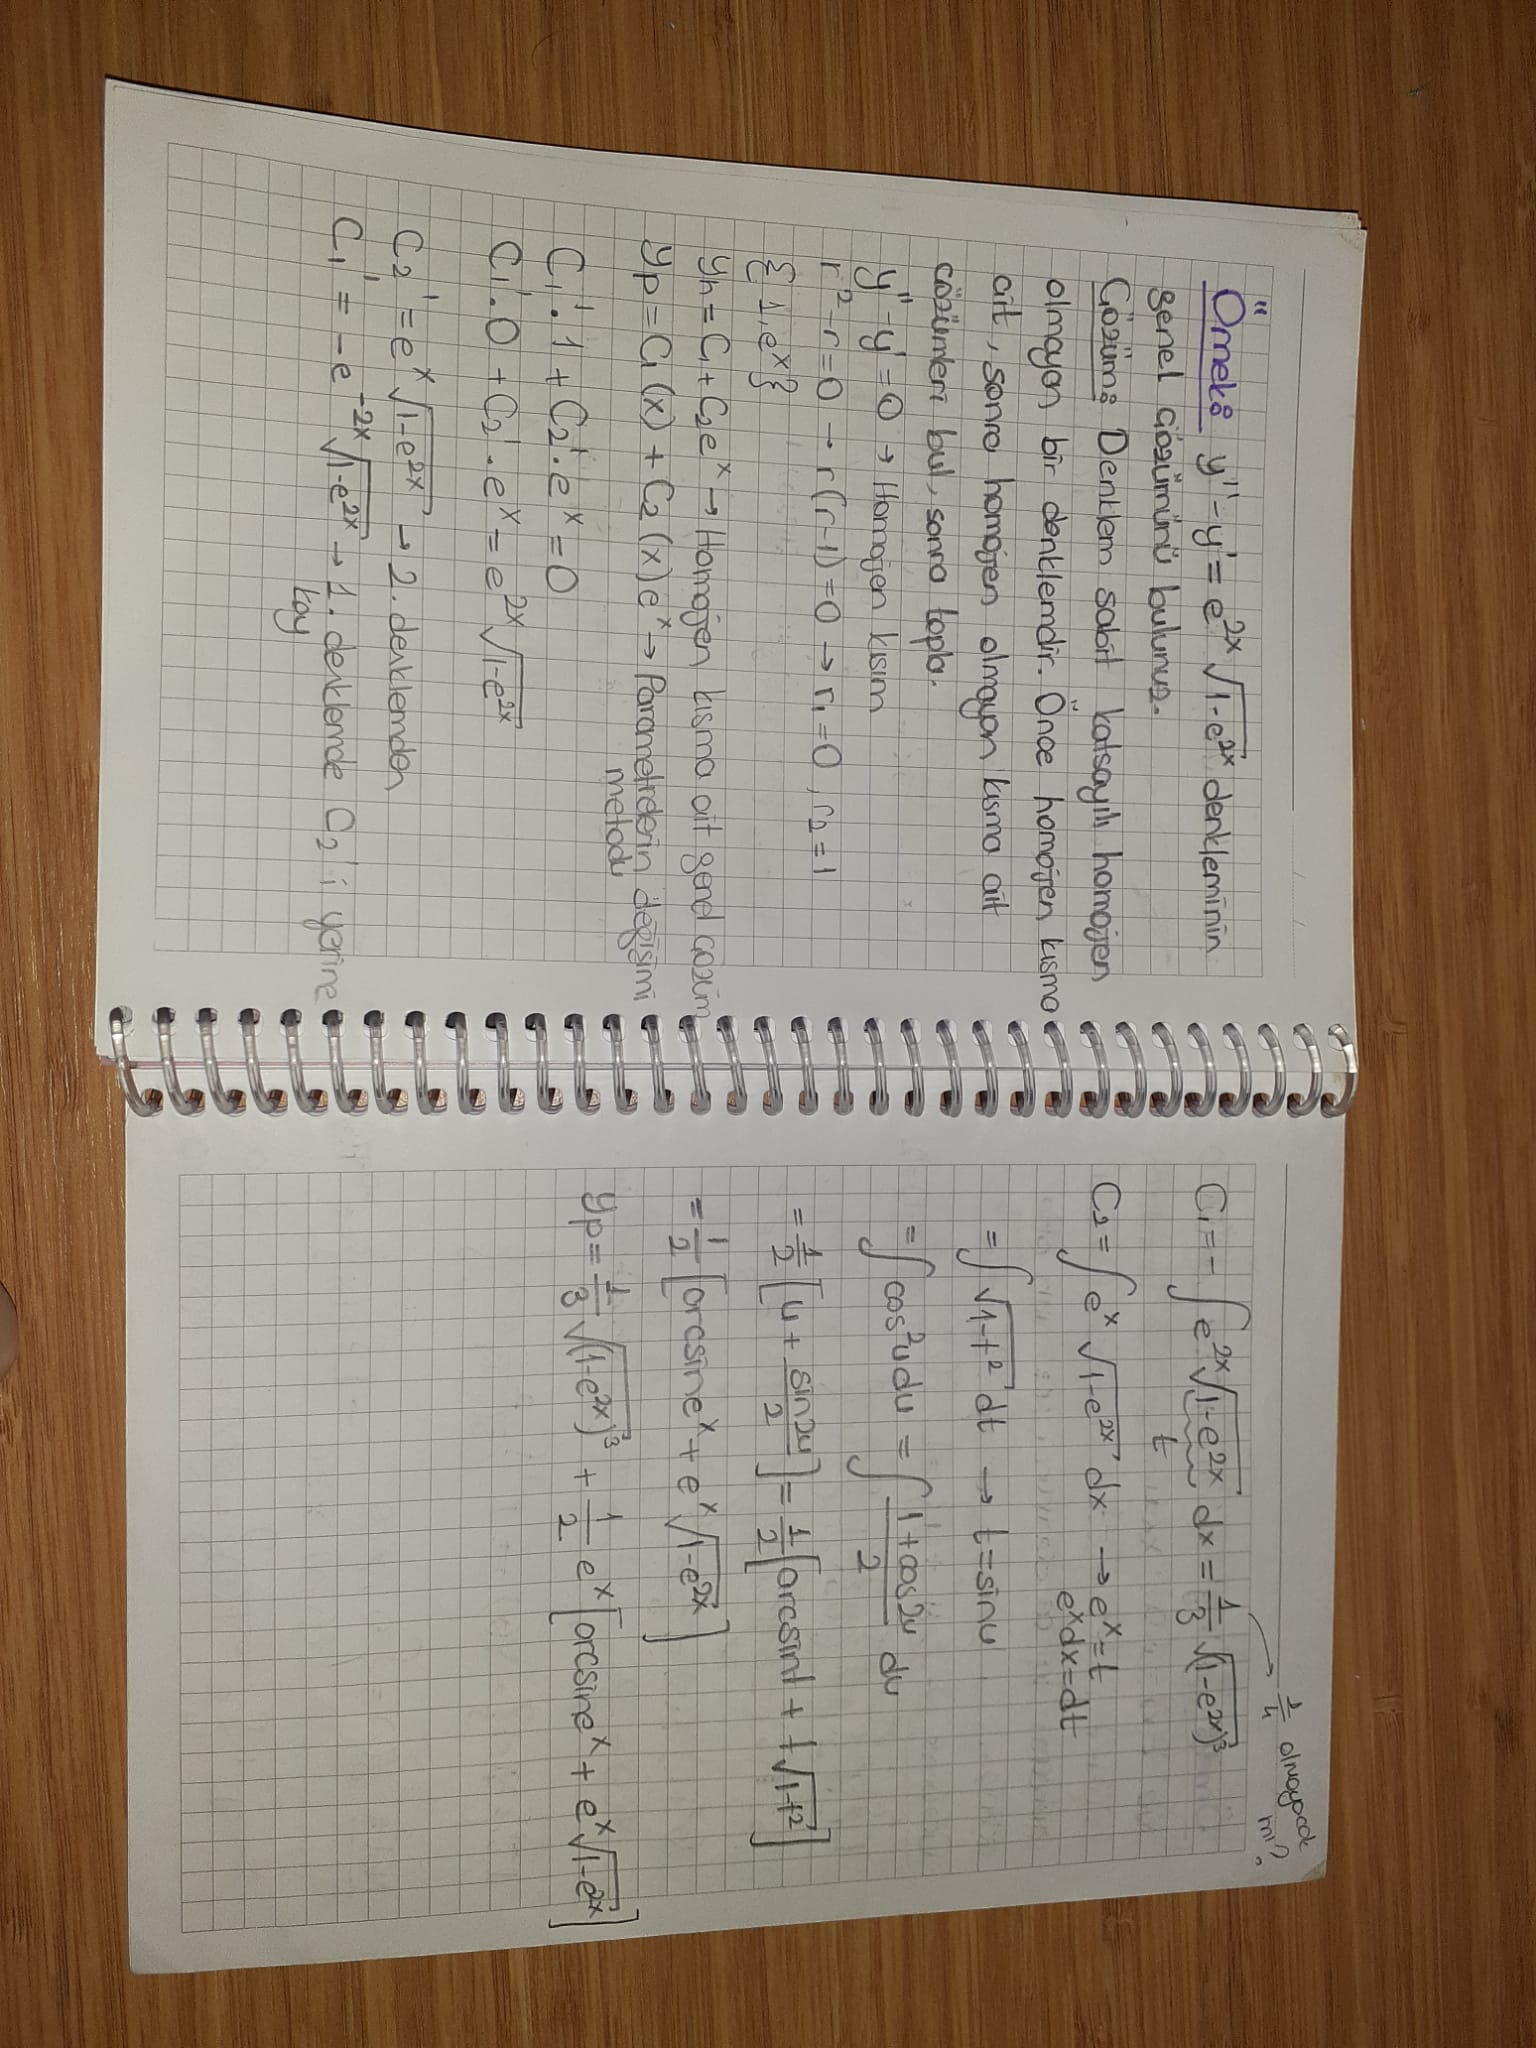 Örnek: y'' - y' = e^{2x} √(1-e^{2x}) denkleminin
genel çözümünü bulunuz.
Çözüm: Denklem sabit katsayılı homojen
olmayan bir denklemdir. Önce homojen kısma
ait, sonra homojen olmayan kısma ait
çözümleri bul, sonra topla.
y'' - y' = 0 → Homojen kısım
r² - r = 0 → r(r-1) = 0 → r₁ = 0, r₂ = 1
{1, e^x}
y_h = C₁ + C₂e^x → Homojen kısma ait genel çözüm
y_p = C₁(x) + C₂(x)e^x → Parametrelerin değişimi
metodu
C₁'.1 + C₂'.e^x = 0
C₁'.0 + C₂'.e^x = e^{2x} √(1-e^{2x})
C₂' = e^x √(1-e^{2x}) → 2. denklemden
C₁' = -e^{-2x} √(1-e^{2x}) → 1. denklemde C₂' i yerine
koy
→ 1/4 olmayacak
mı?
C₁ = - ∫ e^{2x} √(1-e^{2x}) dx = 1/3 √(1-e^{2x})³
t
C₂ = ∫ e^x √(1-e^{2x}) dx → e^x = t
e^x dx = dt
= ∫ √(1-t²) dt → t = sinu
= ∫ cos²u du = ∫ (1+cos2u)/2 du
= 1/2 [u + sin2u/2] = 1/2 [arcsint + t√(1-t²)]
= 1/2 [arcsine^x + e^x √(1-e^{2x})]
y_p = 1/3 √(1-e^{2x})³ + 1/2 e^x [arcsine^x + e^x √(1-e^{2x})]